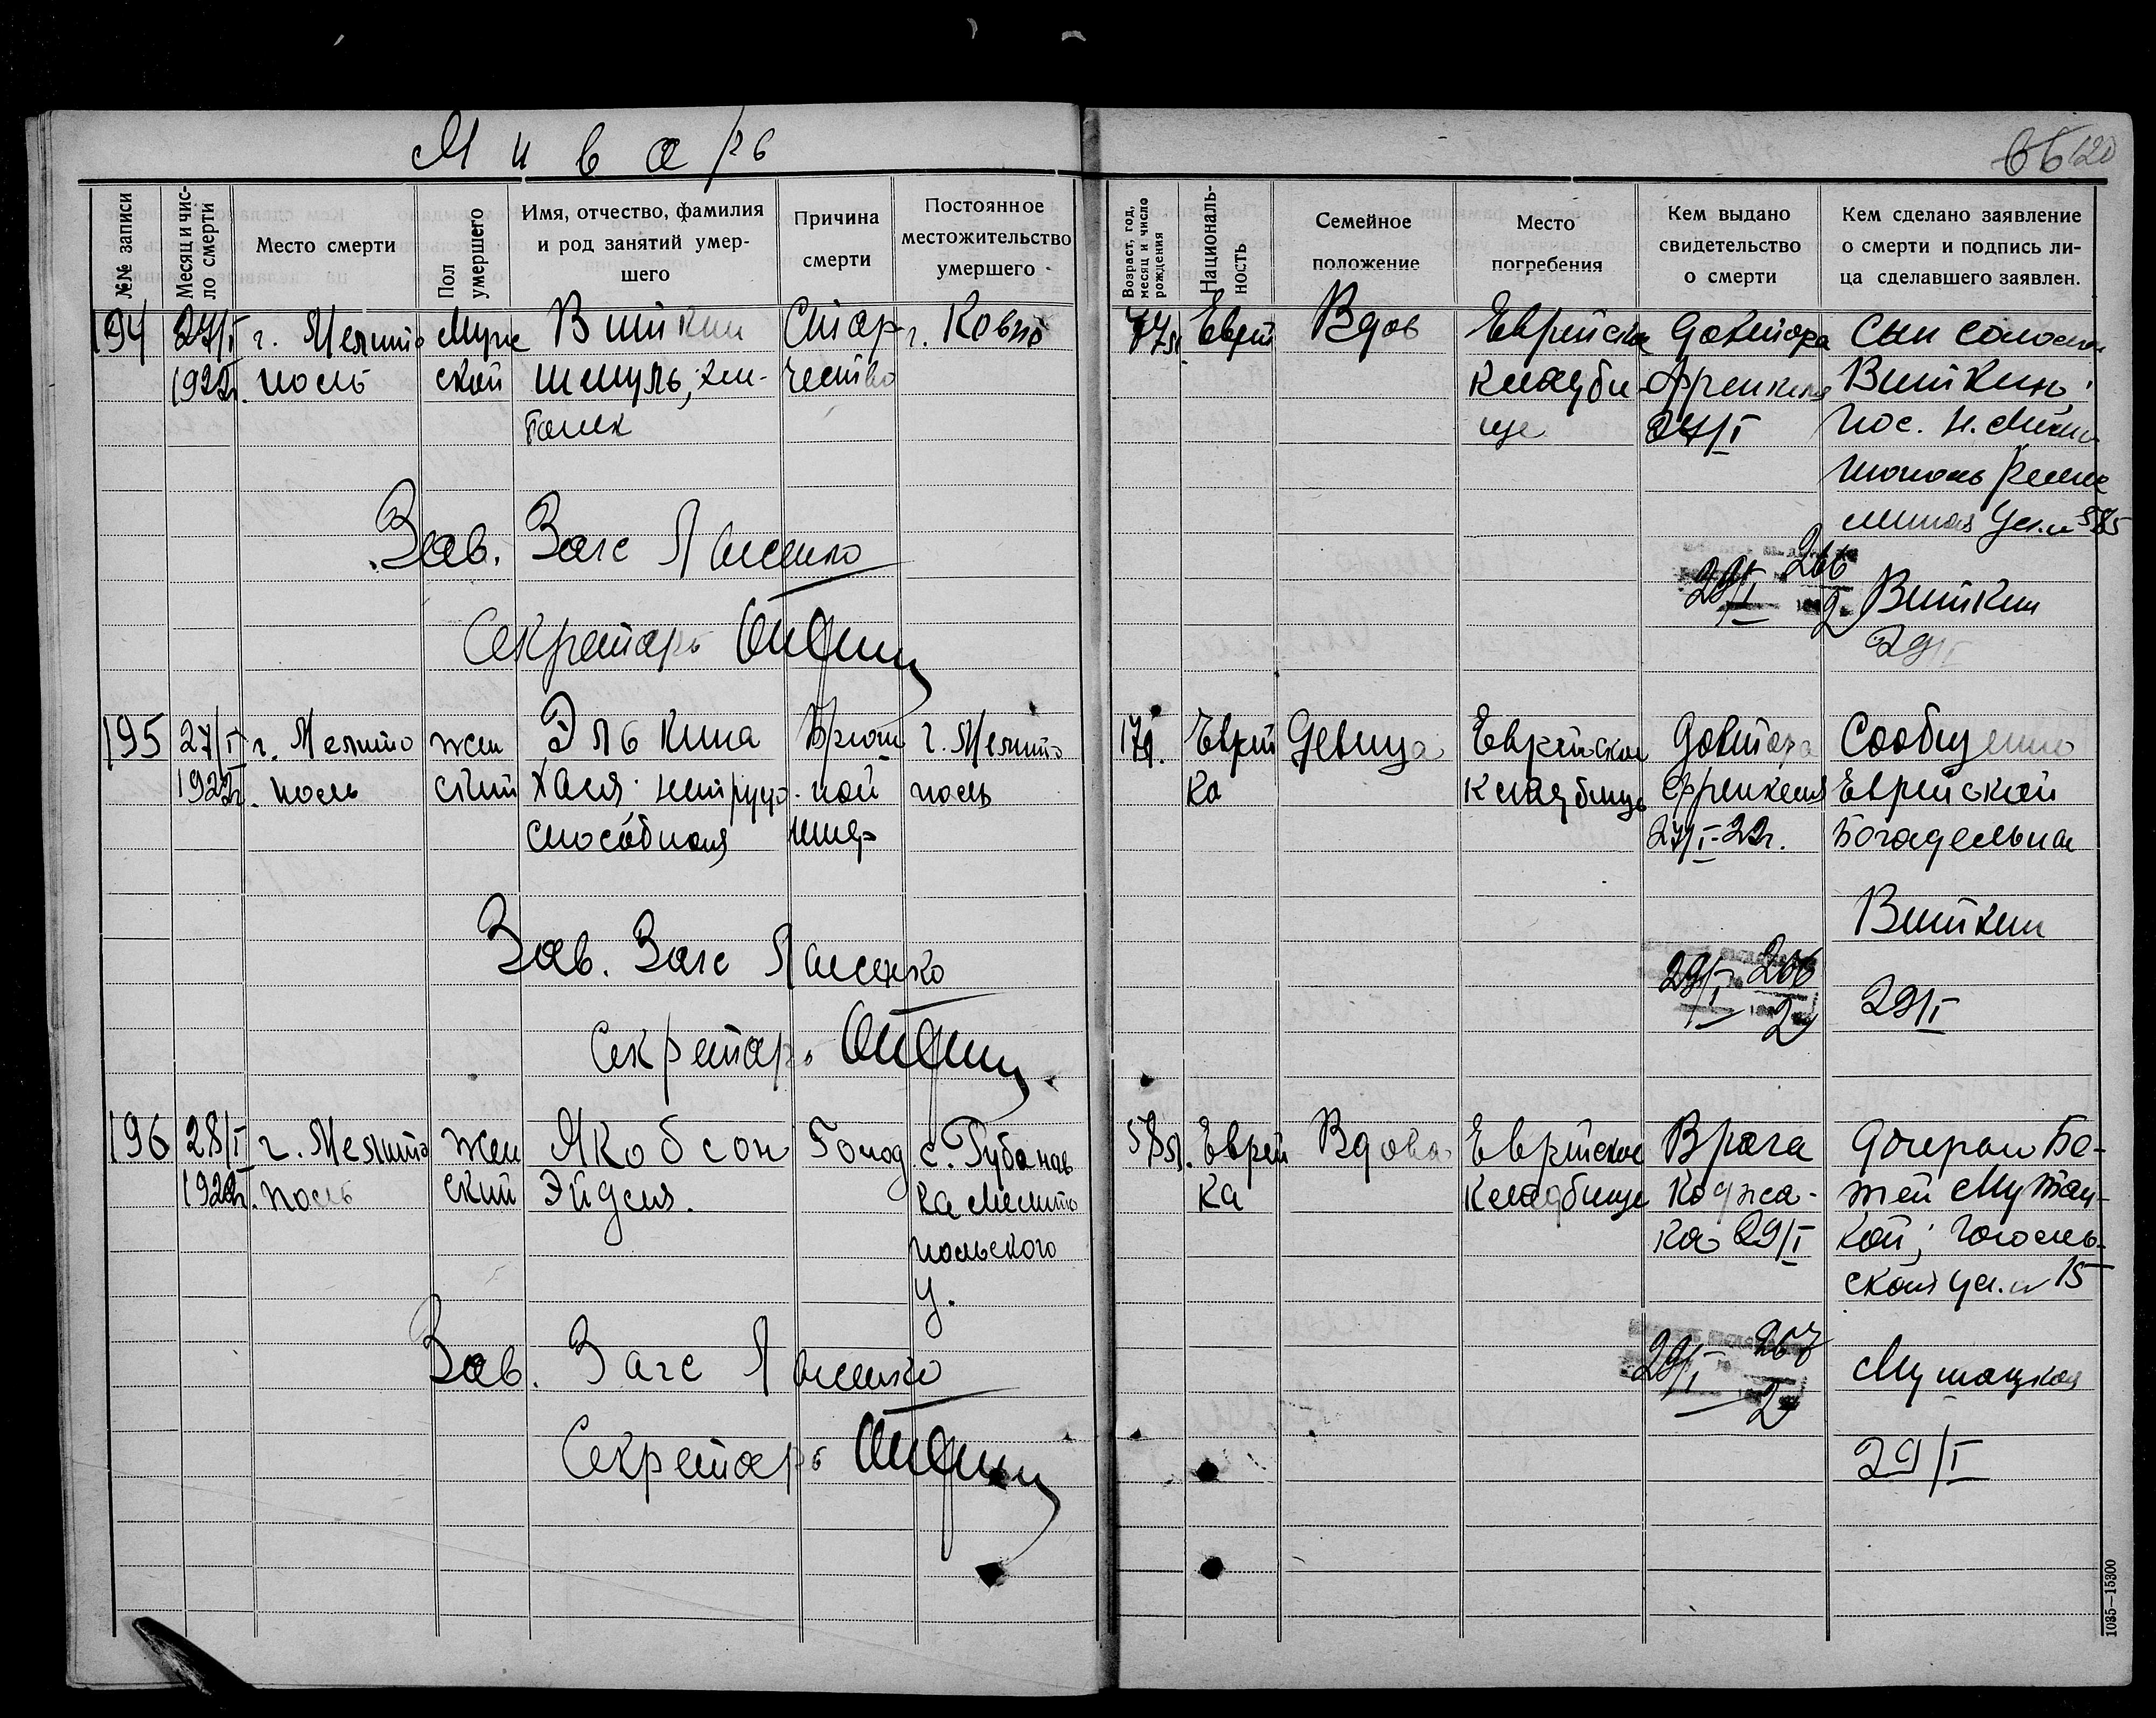 Январь
66 120
№№ записи
Месяц и чис-
ло смерти
Место смерти
Пол
умершего
Имя, отчество, фамилия
и род занятий умер-
шего
Причина
смерти
Постоянное
местожительство
умершего
Возраст, год,
месяц и число
рождения
Националь-
ность
Семейное
положение
Место
погребения
Кем выдано
свидетельство
о смерти
Кем сделано заявление
о смерти и подпись ли-
ца сделавшего заявлен.
194
27/I
1922г.
г. Мелито
поль
Муж
ской
Виткин
Шмуль,
Стар-
чество
г. Ковно
77л.
Еврей
Вдов
Еврейское
кладби
ще
Доктора
Френкеля
27/I
Сын Соломон
Виткин
ул. № 585
29/I 266
2
Виткин
29/I
Зав. Загс
Секретарь
195
27/I
1922г.
г. Мелито
поль
жен
ский
Элькина
Хая нетрудо-
способная
Брюш
ной
тиф
г. Мелито
поль
17л.
Еврей
ка
Девица
Еврейское
кладбище
Доктора
Френкеля
27/I-22г.
Сообщению
Еврейской
Богадельни
Виткин
29/I 266
2
29/I
Зав. Загс
Секретарь
196
28/I
1922г.
г. Мелито
поль
жен
ский
Якобсон
Эйдля.
Голод
с. Губанов
ка Мелито
польского
у.
58л.
Еврей
ка
Вдова
Еврейское
кладбище
Врача
Коджа-
ка 29/I
Дочерью Бе-
тей Мутац-
кой; Гоголь-
ская ул. № 15
29/I 267
2
Мутацкая
29/I
Зав. Загс
Секретарь
1035—15300